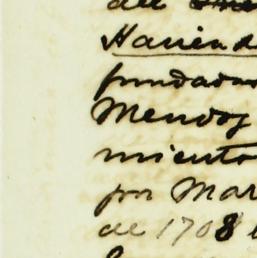 del
Haciend
fundada
Mendoz
miento
por Mar
de 1708